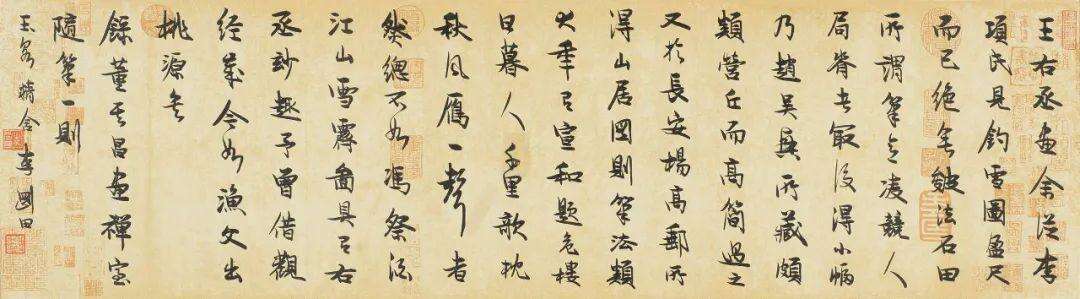 王右丞畫余從李
項氏見釣雪圖盈尺
而已絕無皴法石田
所謂筆意凌競人
局脊者最後得小幅
乃趙吳興所藏頗
類營丘而高簡過之
又於長安楊高郵所
得山居圖則筆法類
大年有宣和題危樓
日暮人千里欹枕
秋風雁一聲者
然總不如馮祭酒
江山雪霽圖具有右
丞妙趣予曾借觀
經歲今如漁父出
桃源矣
錄董其昌畫禪室
隨筆一則
玉茗精舍 李國田